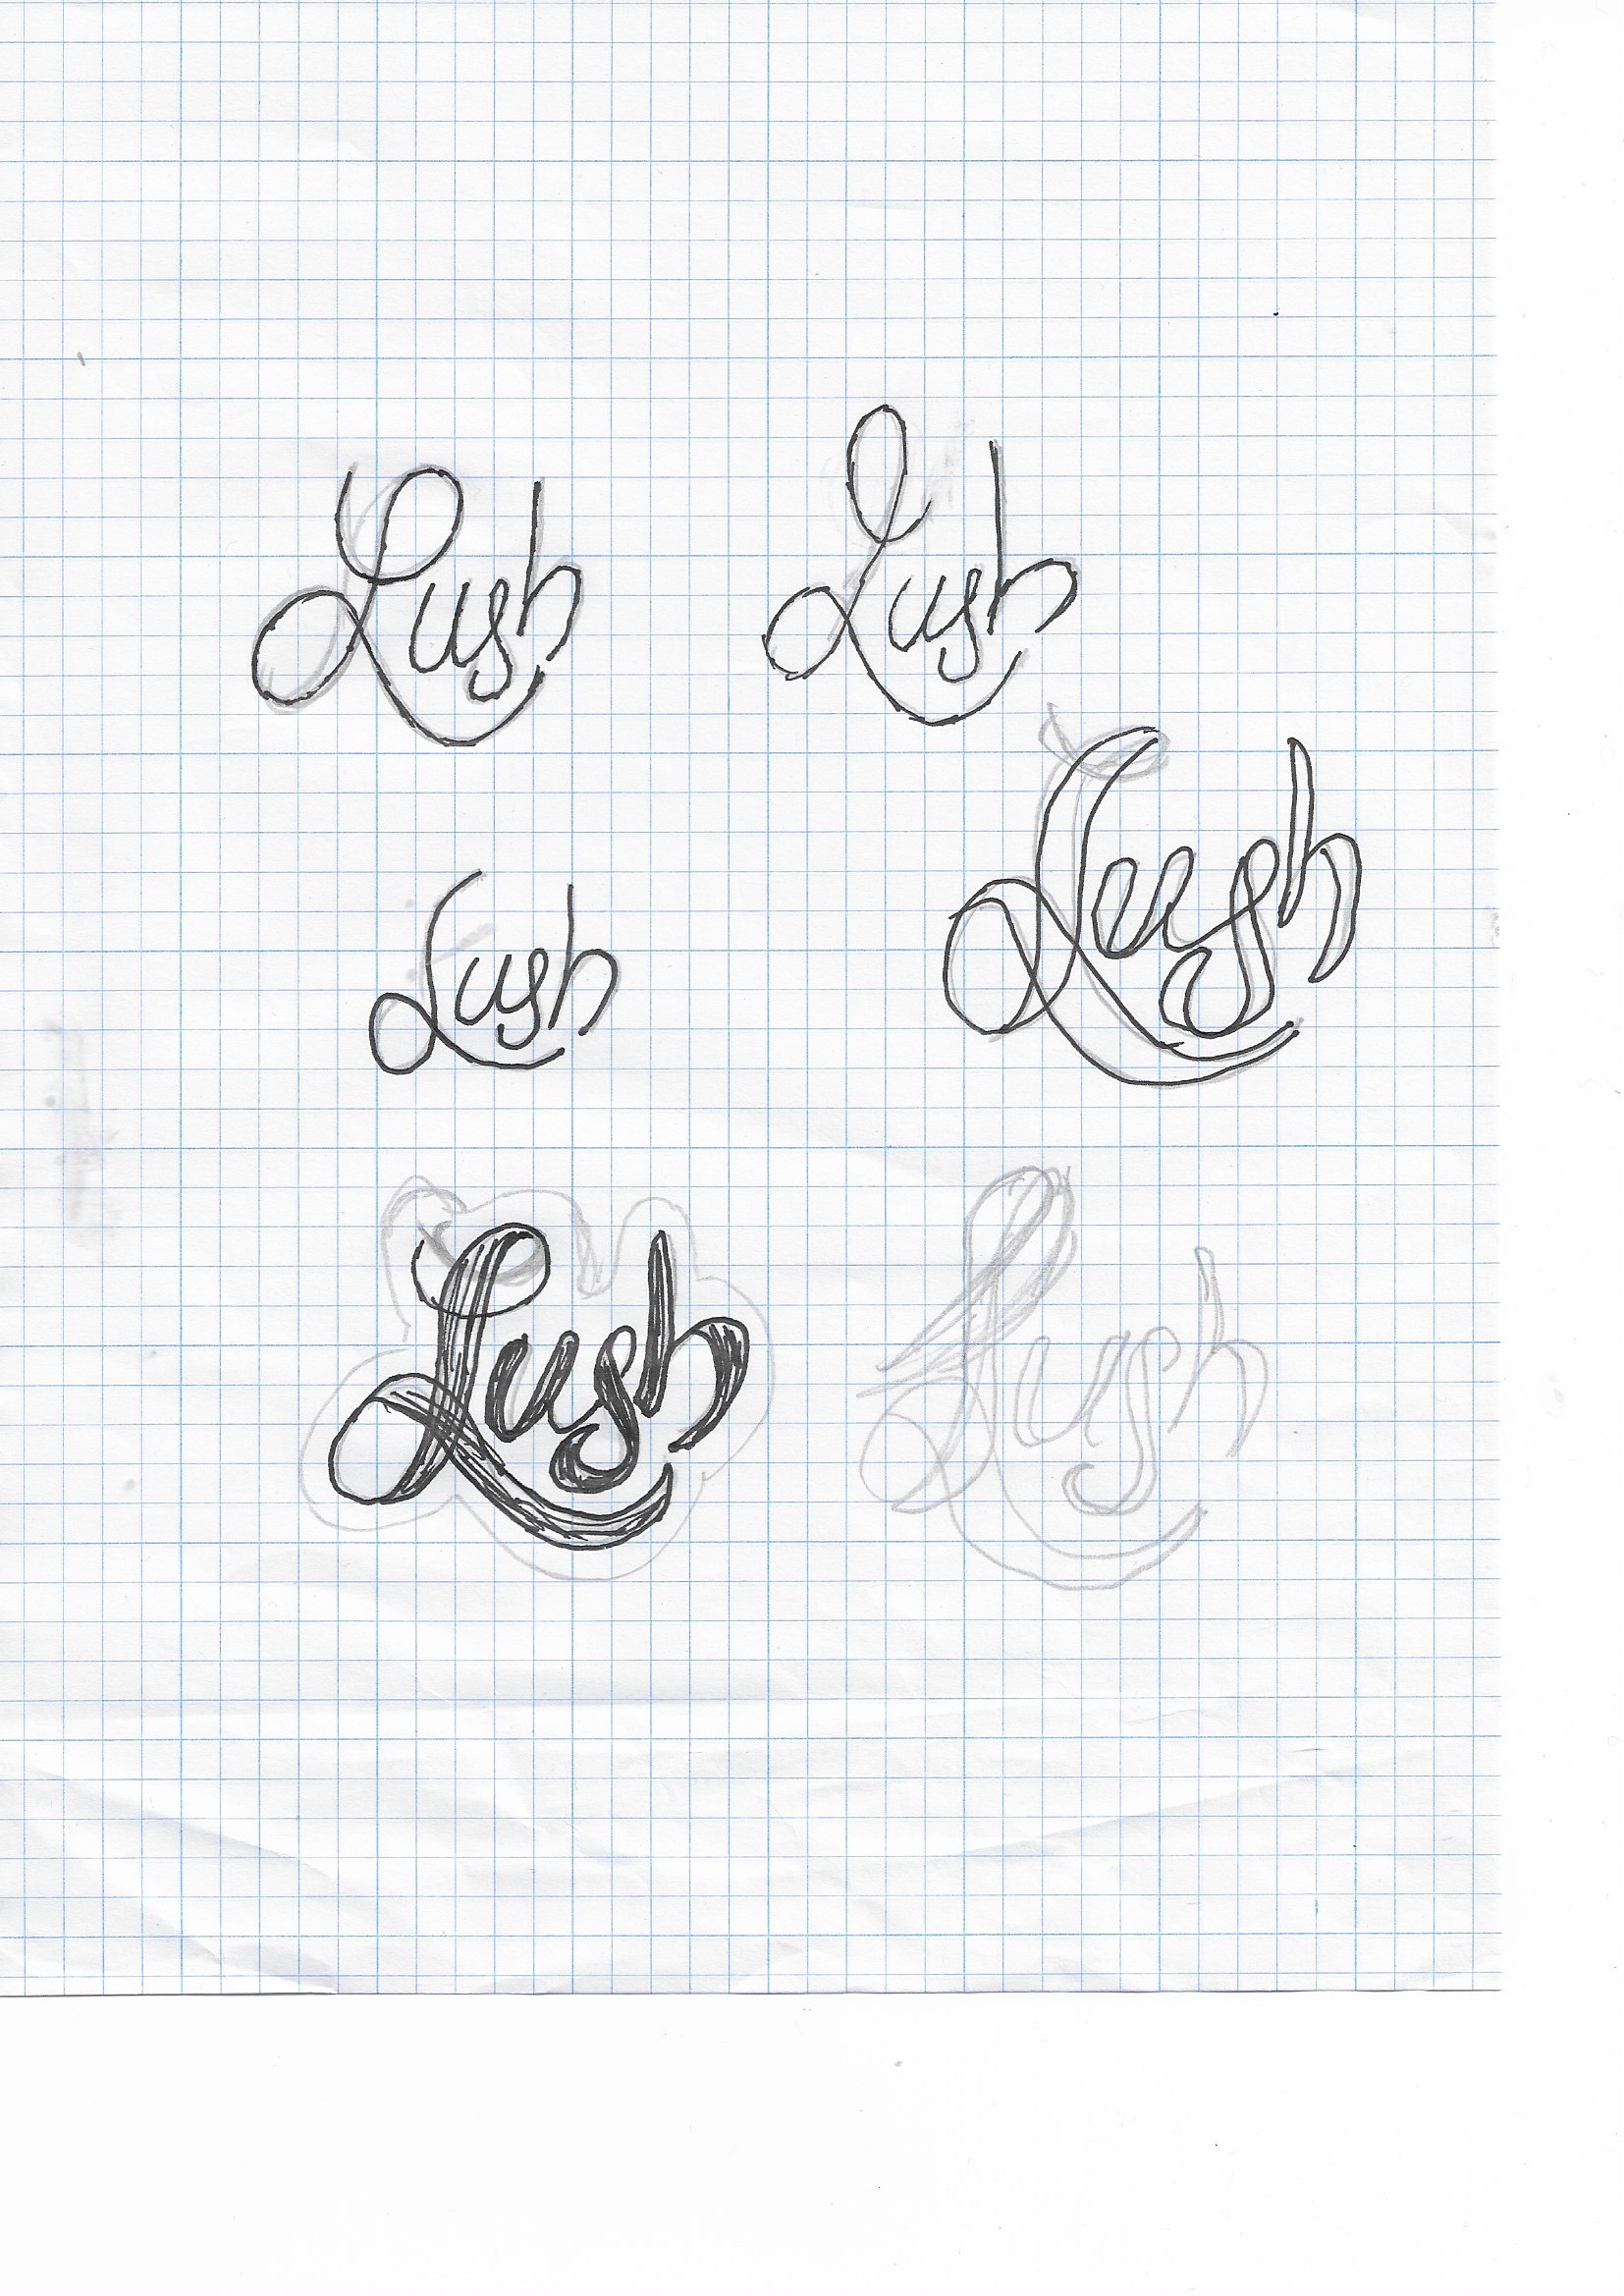 Lush
Lush
Lush
Lush
Lush
Lush